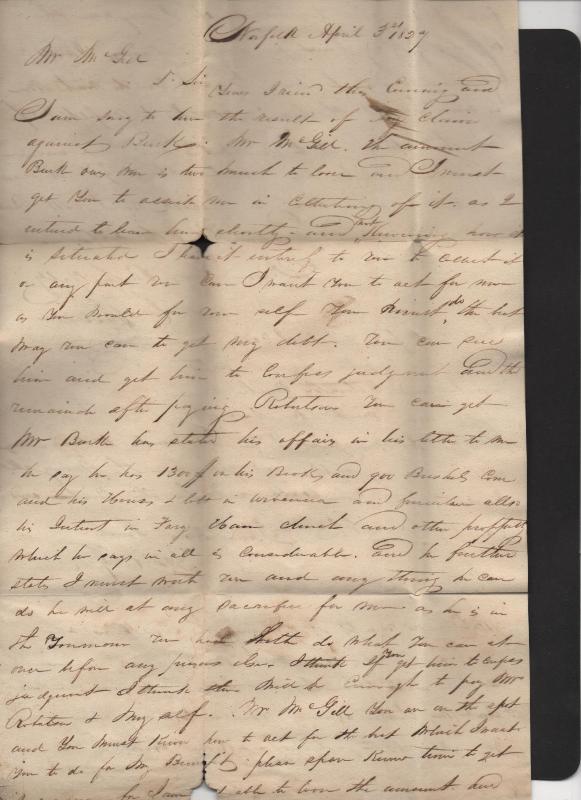 Norfolk April 3rd 1827
Mr McGill
Dr Sir
Yours I recd this Evening and
I am sorry to hear the result of my Claim
against Burk. Mr McGill. The amount
Burk ows me is two much to loose and I must
get You to assist me in Collecting of it. as I
intend to leave here shortly and not knowing how it
is situated I leave it entirely to You to Collect it
or any part You Can I want You to act for me
as You Would for Your self You must do the best
Way You can to get my debt. You can see
him and get him to Confess judgment and the
remainder after paying Robertson You can get
Mr Burk has stated his affairs in his letter to me
he says he has 1300$ on his Books and 900 Bushels Corn
and his Houses & lots in and furniture allso
his Interest in and other property
Which he says in all is Considerable. And he further
stats I must write You and any thing he can
do he will at any sacrifice for me as he is in
the You do What You can at
once before any person else. I think If You get him to Confess
judgment I think there Will be Enough to pay Mr
Robertson & My self. Mr McGill You are on the spot
and You Must Know how to act for the best Which I want
You to do for My Benefit please spare Know time to get
for I am not able to loose the amount and